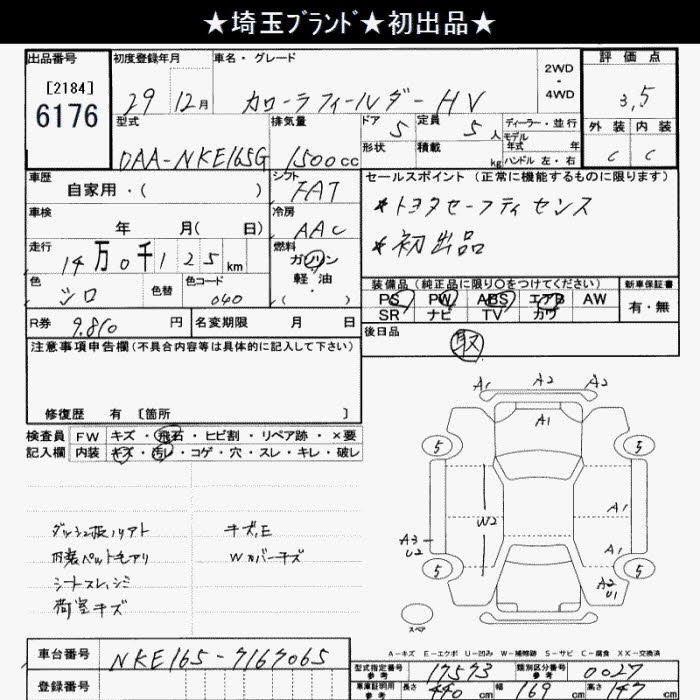 ★埼玉ﾌﾞﾗﾝﾄﾞ★初出品★
出品番号 初度登録年月 車名・グレード 2WD・4WD 評価点
[2184]
6176 29 12月 カローラフィールダー HV 3,5
型式 排気量 ドア 5 定員 5人 ディーラー・並行 外装 内装
モデル年式 年
DAA-NKE165G 1500cc 形状 積載 kg ハンドル 左・右 C C
車歴 シフト セールスポイント (正常に機能するものに限ります)
自家用・( ) FAT
*トヨタセーフティセンス
車検 冷房
年 月( 日) AAC
*初出品
走行 燃料
14万0千125km ガソリン
軽・油
( )
色 色替 色コード 装備品 (純正品に限り○をつけてください) 新車保証書
シロ 040 PS PW ABS エアB AW 有・無
SR ナビ TV カワ
R券 9.810円 名変期限 月 日 後日品
取
注意事項申告欄 (不具合内容等は具体的に記入して下さい)
修復歴 有 [箇所 ]
検査員 FW キズ・飛石・ヒビ割・リペア跡・×要
記入欄 内装 キズ・汚レ・コゲ・穴・スレ・キレ・破レ
A1 A2 A2
A1
5 5
W2 A1
A3
U2 A1
5 5
A2
U1
スペア
キズ、E
内装ペット毛アリ Wカバーキズ
荷室キズ
A-キズ E-エクボ U-凹み W-補修跡 S-サビ C-腐食 XX-交換済
車台番号 NKE165-7167065
型式指定番号 参考 17573 類別区分番号 参考 0027
登録番号
車庫証明用 参考 長さ 440cm 幅 169cm 高さ 147cm